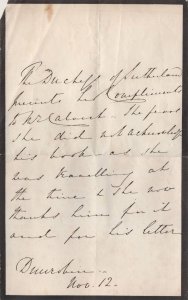 The Duchess of Sutherland
presents her Compliments
to Mr Calvert. She fears
she did not acknowledge
his book as she
was travelling at
the time & She now
thanks him for it
and for his letter
Dunrobin
Nov. 12.